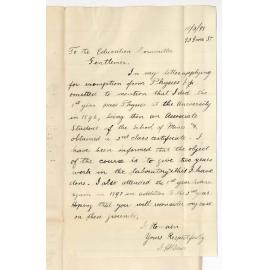 To the Education Committee
Gentlemen
In my letter applying
for exemption from Physics I
omitted to mention that I did the
1st year pass Physics at the University
in 1896, being then an Associate
Student of the School of Mines &
obtained a 2nd class certificate. I
have been informed that the object
of the course is to give two years
work in the laboratory & this I have
done. I also attended the 1st year course
again in 1897 in addition to the 3rd
hoping that you will reconsider my case
on these grounds,
I Remain
Yours Respectfully